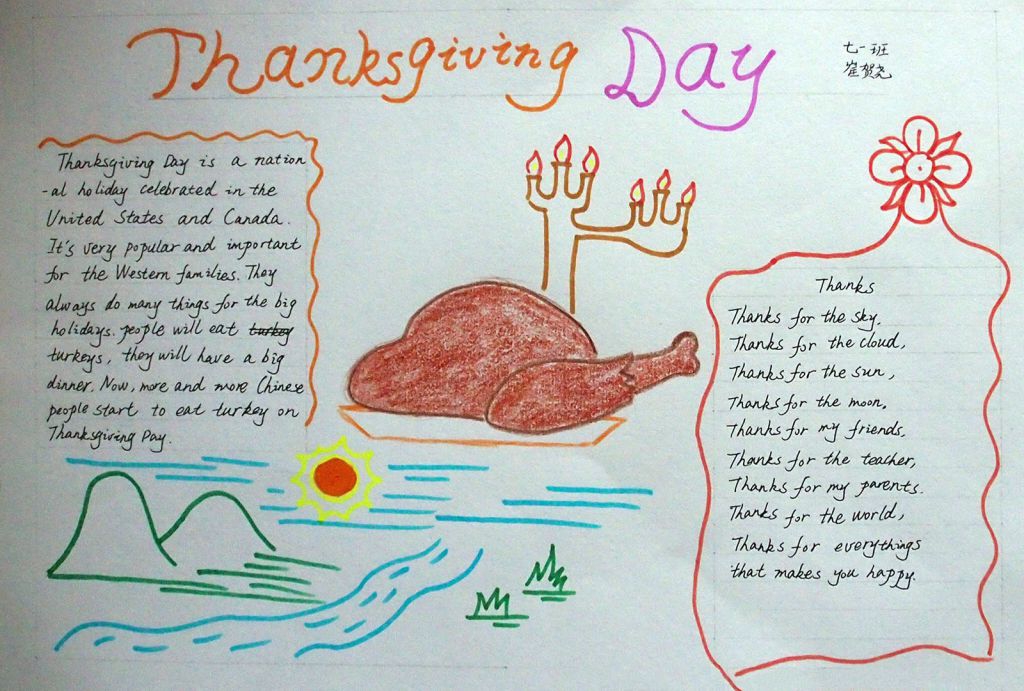 Thanksgiving Day
七一班
崔贺尧
Thanksgiving Day is a nation
-al holiday celebrated in the
United States and Canada.
It's very popular and important
for the Western families. They
always do many things for the big
holidays. people will eat turkey
turkeys, they will have a big
dinner. Now, more and more Chinese
people start to eat turkey on
Thanksgiving Day.
Thanks
Thanks for the sky.
Thanks for the cloud,
Thanks for the sun,
Thanks for the moon.
Thanks for my friends.
Thanks for the teacher,
Thanks for my parents.
Thanks for the world,
Thanks for everythings
that makes you happy.